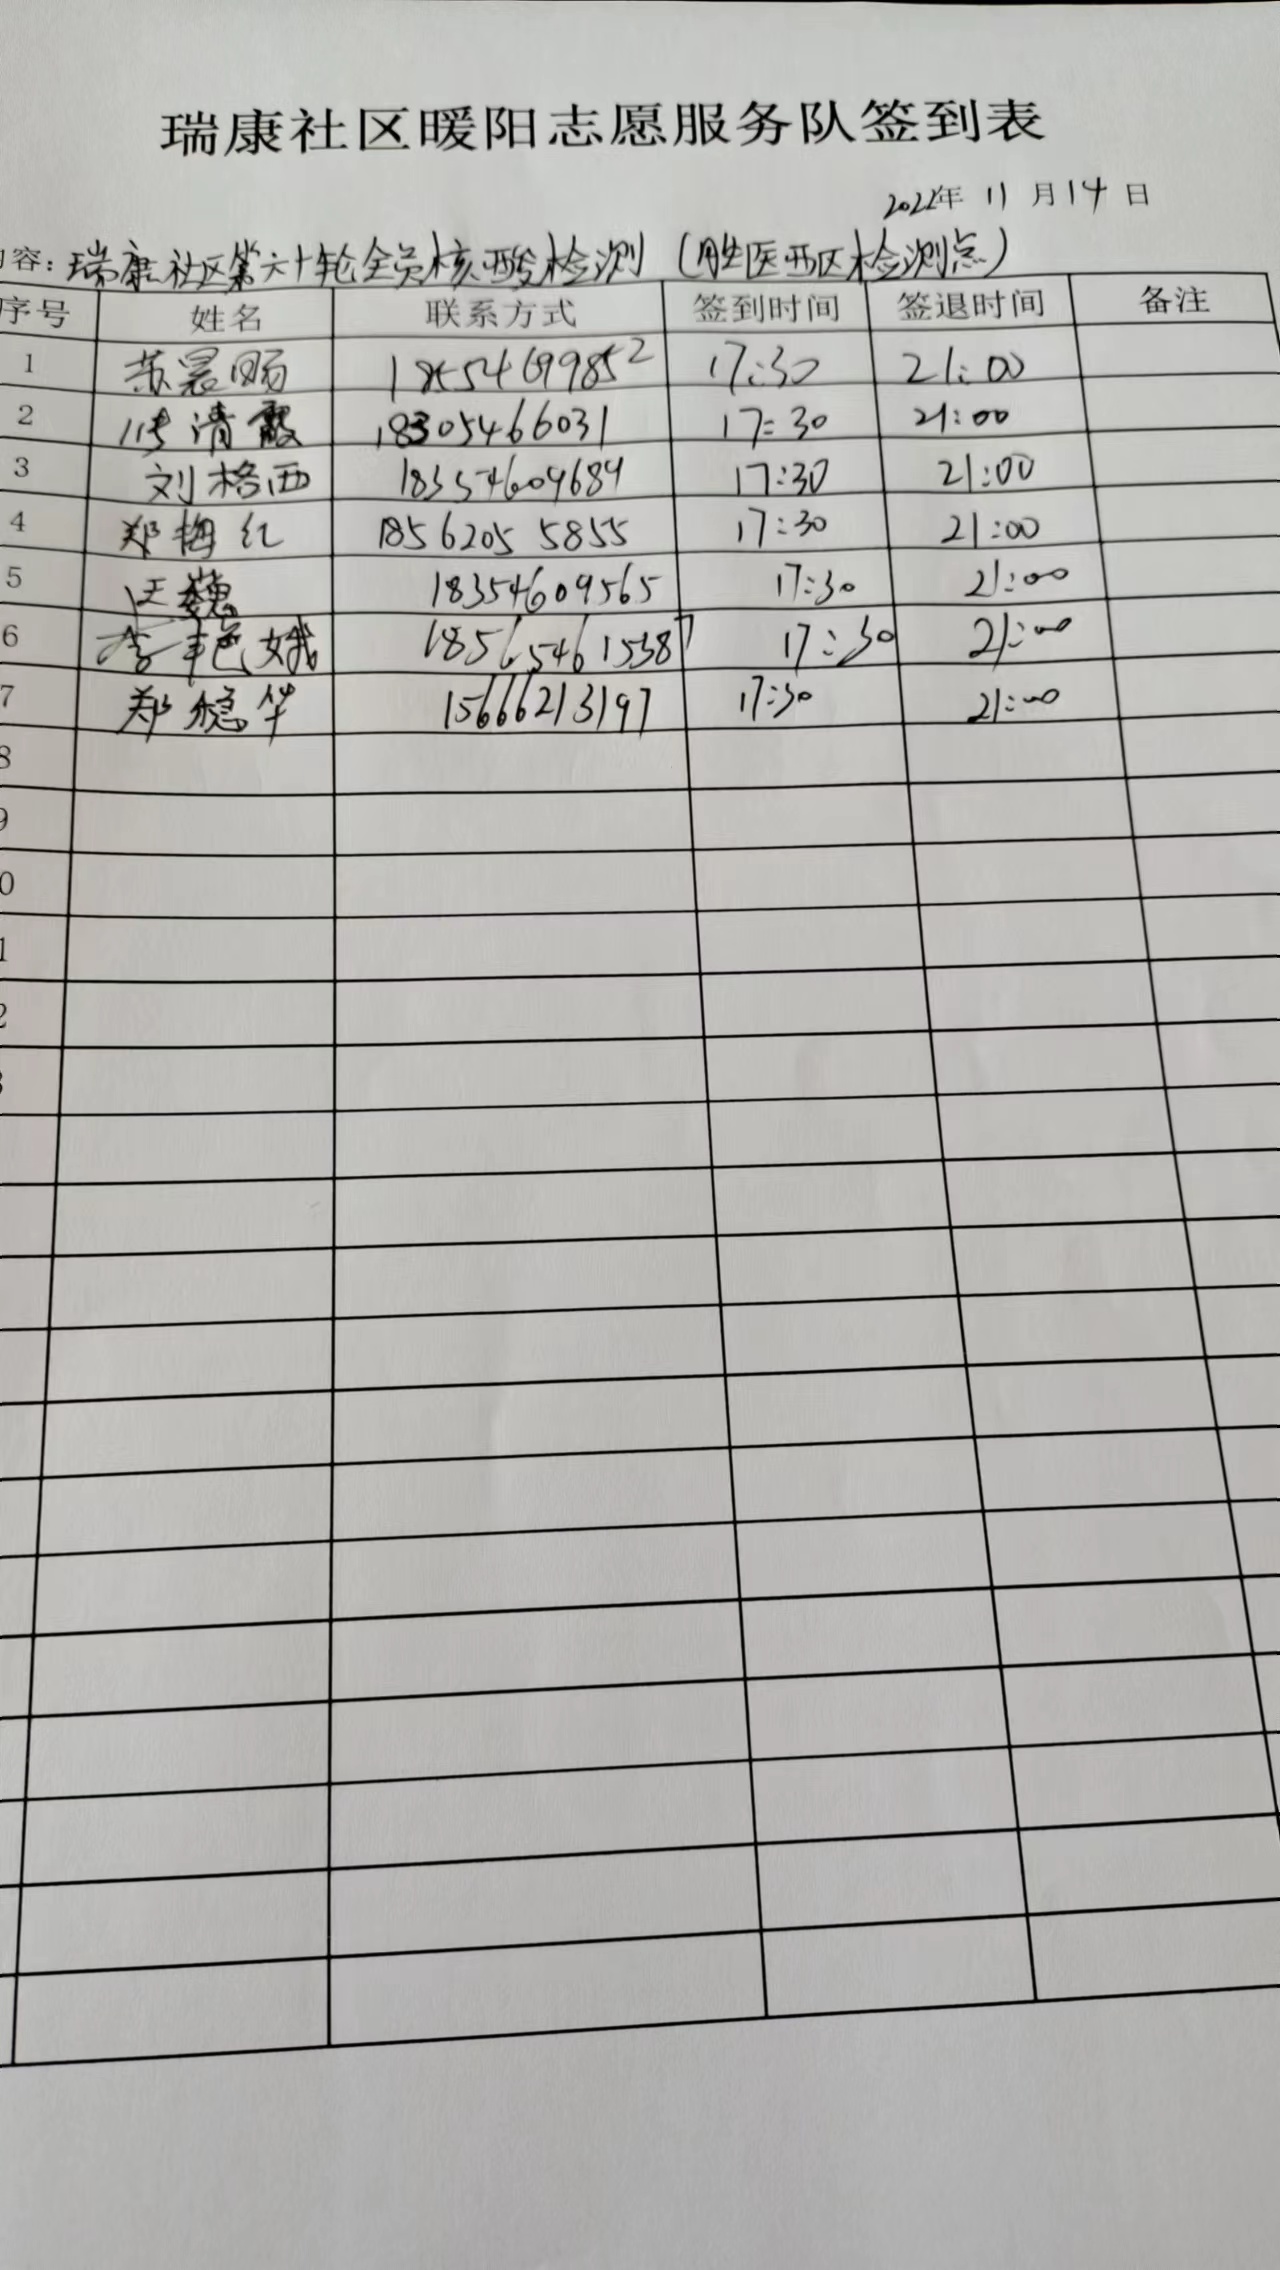 瑞康社区暖阳志愿服务队签到表
2022年 11 月 14 日
容：瑞康社区第六十轮全员核酸检测（胜医西区检测点）
序号 姓名 联系方式 签到时间 签退时间 备注
1 苏晨旸 18554699852 17:30 21:00
2 清霞 18305466031 17:30 21:00
3 刘格西 18354609689 17:30 21:00
4 郑梅红 18562055855 17:30 21:00
5 汪巍 18354609565 17:30 21:00
6 李艳娥 17:30 21:00
7 郑稳华 15666213197 17:30 21:00
8
9
0
1
2
3